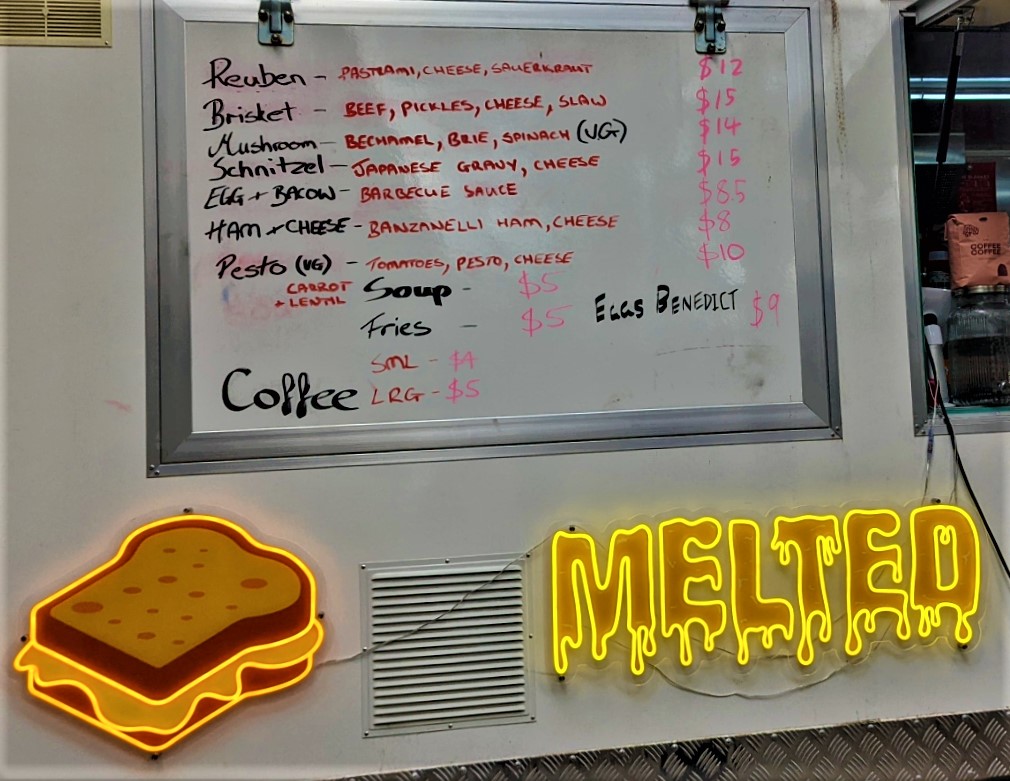 Reuben - PASTRAMI, CHEESE, SAUERKRAUT $12
Brisket - BEEF, PICKLES, CHEESE, SLAW $15
Mushroom - BECHAMEL, BRIE, SPINACH (VG) $14
Schnitzel - JAPANESE GRAVY, CHEESE $15
EGG + BACON - BARBECUE SAUCE $8.5
HAM + CHEESE - BANZANELLI HAM, CHEESE $8
Pesto (VG) - TOMATOES, PESTO, CHEESE $10
CARROT + LENTIL Soup - $5
Fries - $5 EGGS BENEDICT $9
Coffee SML - $4
LRG - $5
COFFEE
COFFEE
MELTED